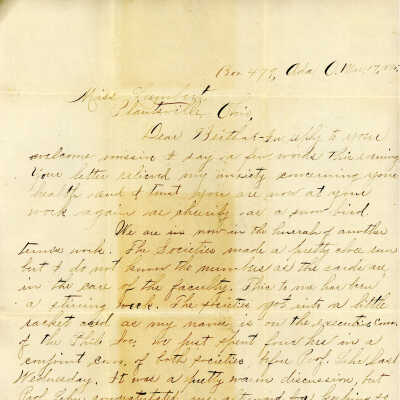 Box 478, Ada, O. Mar. 17,
Miss
Plantsville, Ohio,
Dear Bertha:- In reply to your
welcome missive I say a few words this evening
Your letter relieved my anxiety concerning your
health and I trust you are now at your
work again as cheerily as a snow bird.
We are in now in the of another
terms work. The Societies made a pretty close run
but I do not know the number as the cards are
in the care of the faculty. This to me has been
a stirring week. The societies got into a little
racket and as my name is on the executive Com.
of the Philo Soc. We just spent four hrs in a
conjoint com. of both societies before Prof. Lehr last
Wednesday. It was a pretty warm discussion, but
Prof Lehr congratulated me afterward for keeping so